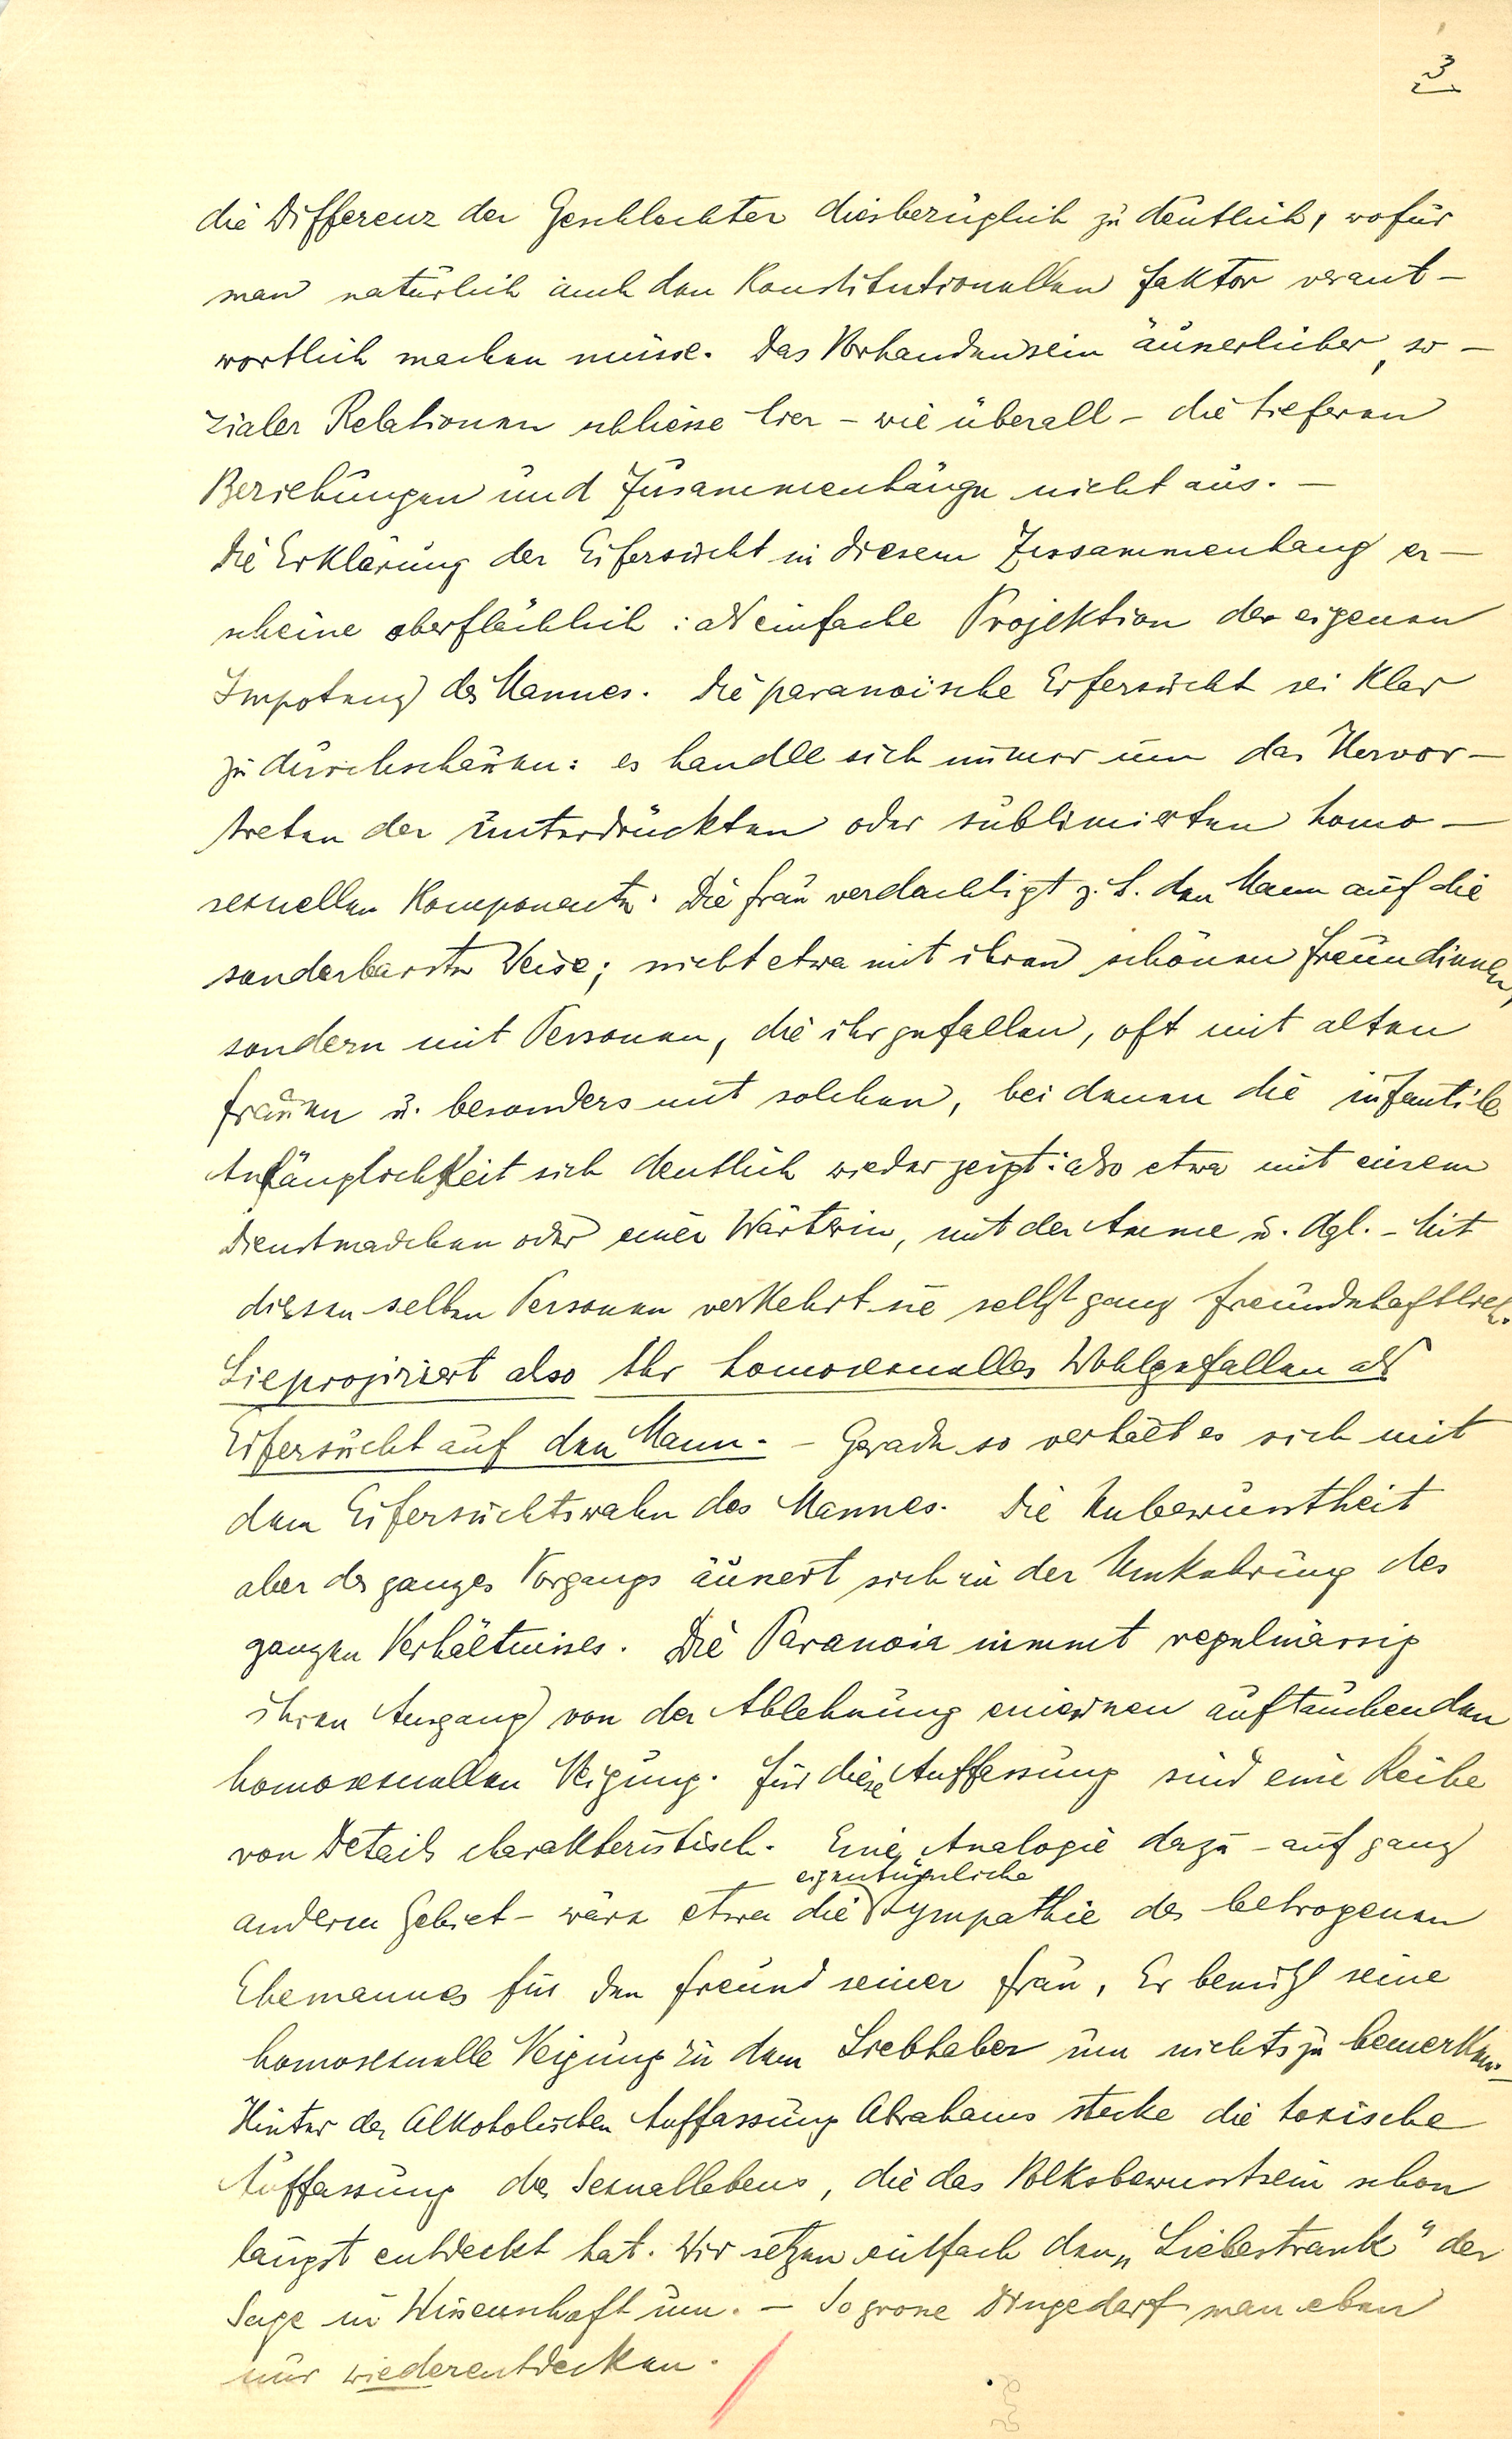 3
die Differenz der Geschlechter diesbezüglich zu deutlich, wofür
man natürlich auch den Konstitutionellen Faktor verant-
wortlich machen müsse. Das Vorhandensein äusserlicher, so-
zialer Relationen schliesse hier – wie überall – die tieferen
Beziehungen und Zusammenhänge nicht aus. –
Die Erklärung der Eifersucht in diesem Zusammenhang er-
scheine oberflächlich: als einfache Projektion der eigenen
Impotenz des Mannes. Die paranoische Eifersucht sei klar
zu durchschauen: es handle sich immer um das Hervor-
treten der unterdrückten oder sublimierten homo-
sexuellen Komponente. Die Frau verdächtigt z. B. den Mann auf die
sonderbarste Weise; nicht etwa mit ihren schönen Freundinnen,
sondern mit Personen, die ihr gefallen, oft mit alten
Frauen u. besonders mit solchen, bei denen die infantile
Anhänglichkeit sich deutlich wieder zeigt: also etwa mit einem
Dienstmädchen oder einer Wärterin, mit der Amme u. dgl. – Mit
diesen selben Personen verkehrt sie selbst ganz freundschaftlich.
Sie projiziert also ihr homosexuelles Wohlgefallen als
Eifersucht auf den Mann. – Gerade so verhält es sich mit
dem Eifersuchtswahn des Mannes. Die Unbewusstheit
aber des ganzes Vorgangs äussert sich in der Umkehrung des
ganzen Verhältnisses. Die Paranoia nimmt regelmässig
ihren Ausgang von der Ablehnung einer auftauchenden
homosexuellen Neigung. Für diese Auffassung sind eine Reihe
von Details charakteristisch. Eine Analogie dazu – auf ganz
eigentümliche
anderem Gebiet – wäre etwa die Sympathie des betrogenen
Ehemannes für den Freund seiner Frau. Er benützt seine
homosexuelle Neigung zu dem Liebhaber um nichts zu bemerken. –
Hinter der Alkoholischen Auffassung Abrahams stecke die toxische
Auffassung des Sexuallebens, die das Volksbewusstsein schon
längst entdeckt hat. Wir setzen einfach den „Liebestrank“ der
Sage in Wissenschaft um. – So grosse Dinge darf man eben
nur wiederentdecken.